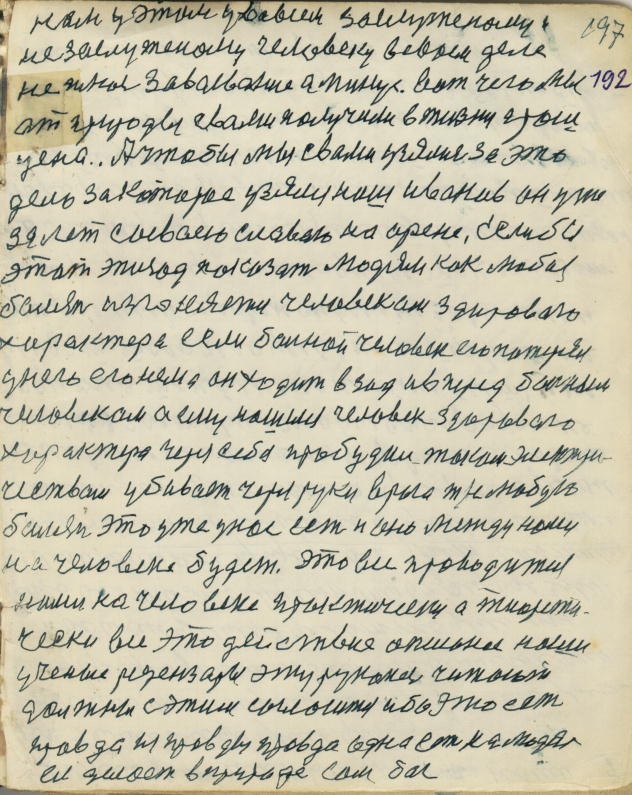 197
нам у этом у всем заслуженому
незаслуженому человеку в своем деле
не жное завалвание а минус. Вот чего мы 192
от природы свами получили в жизни этои
цена.. А чтобы мы свами узялися за это
дело за которое узялися наш иванов он уже
за лет своею славою на арене, Если бы
этот эпизод показат людям как любая
болезн изгоняется человеком здорового
характера если болной человек его потерял
у него его нема он ходит взад и вперед болным
человеком а ему нашли человек здорового
характера через себя пробудил током электри-
чеством убивает через руки врага тже любую
болезн Это уже унас ест и оно между нами
на человеке будет. Это все проводится
нами на человеке практически а тиорети-
чески все это действие описаное наши
ученые рецензары эту рукопис читают
должны сэтим согласится ибо Это ест
правда и правды правда одна ест на людях
ее делает в природе сам бог